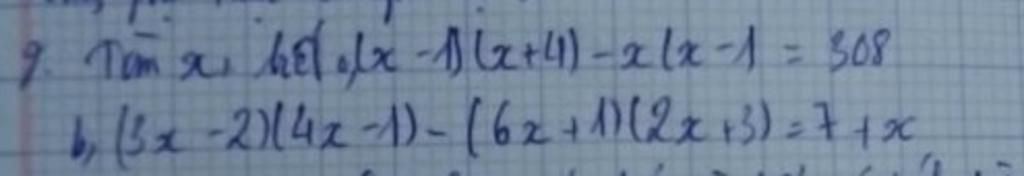 9. Tìm x, biết a, (x - 1)(x+4) - x(x - 1 = 308
b, (3x - 2)(4x - 1) - (6x + 1)(2x + 3) = 7 + x